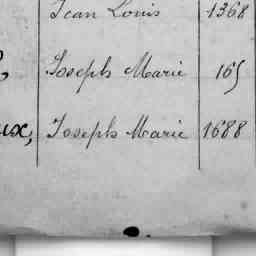 Jean Louis 1368
Joseph Marie 165
ux, Joseph Marie 1688